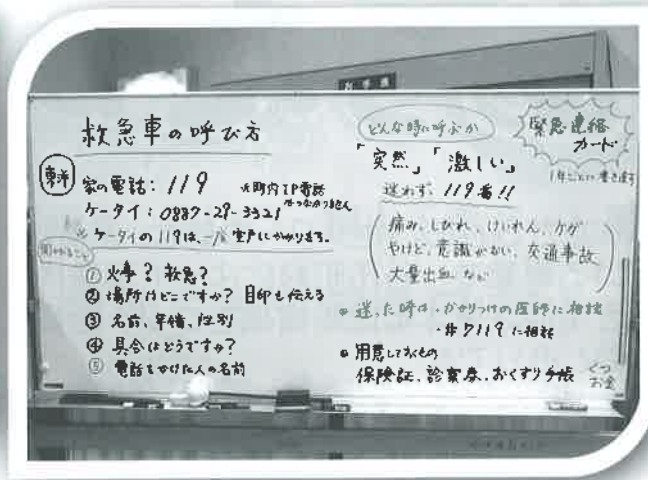 救急車の呼び方
東洋
家の電話：119
※町内IP電話
つながりません
ケータイ：0887-29-3321
※ケータイの119は、一度室戸にかかります。
聞かれること
① 火事？ 救急？
② 場所はどこですか？ 目印も伝える
③ 名前、年齢、性別
④ 具合はどうですか？
⑤ 電話をかけた人の名前
どんな時に呼ぶか
「突然」「激しい」
迷わず 119番!!
痛み、しびれ、けいれん、ケガ
やけど、意識がない、交通事故
大量出血 など
迷った時は・かかりつけの医師に相談
・#7119に相談
用意しておくもの
保険証、診察券、おくすり手帳
くつ
お金
緊急連絡
カード
1年ごとに書き直す